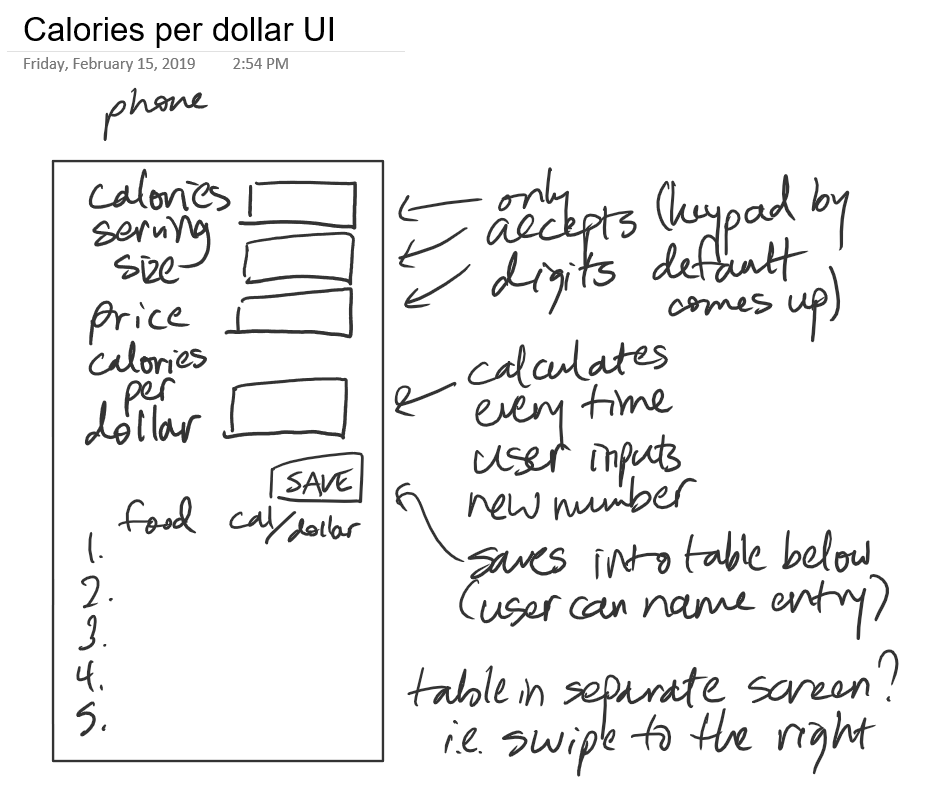 Calories per dollar UI
Friday, February 15, 2019 2:54 PM
phone
calories
serving
size
price
calories
per
dollar
SAVE
food cal/dollar
1.
2.
3.
4.
5.
only
accepts (keypad by
digits default
comes up)
calculates
every time
user inputs
new number
saves into table below
(user can name entry)
table in separate screen?
i.e. swipe to the right